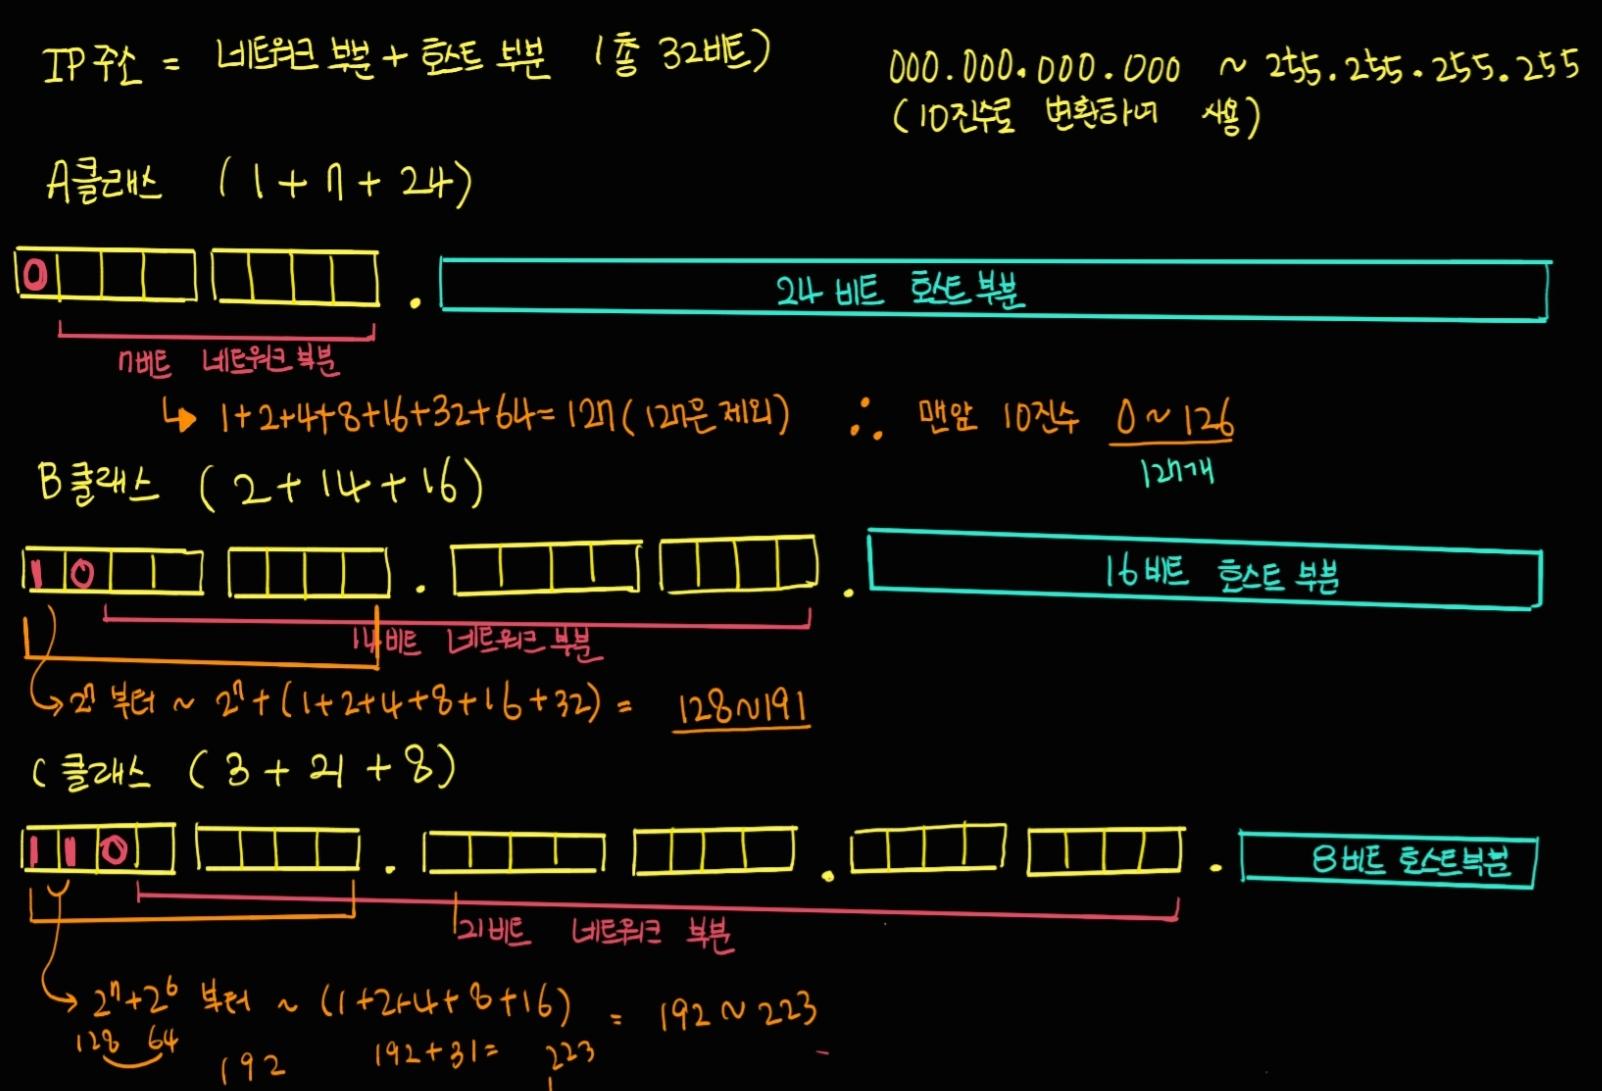 IP주소 = 네트워크 부분 + 호스트 부분 (총 32비트)
000.000.000.000 ~ 255.255.255.255
(10진수로 변환하여 사용)
A클래스 (1+7+24)
0
24 비트 호스트 부분
7비트 네트워크 부분
↳ 1+2+4+8+16+32+64=127(127은 제외) ∴ 맨앞 10진수 0~126
127개
B클래스 (2+14+16)
1 0
16비트 호스트 부분
14비트 네트워크 부분
2⁷ 부터 ~ 2⁷+(1+2+4+8+16+32) = 128~191
C클래스 (3+21+8)
1 1 0
8비트 호스트부분
21비트 네트워크 부분
2⁷+2⁶ 부터 ~ (1+2+4+8+16) = 192~223
128 64
192 192+31= 223